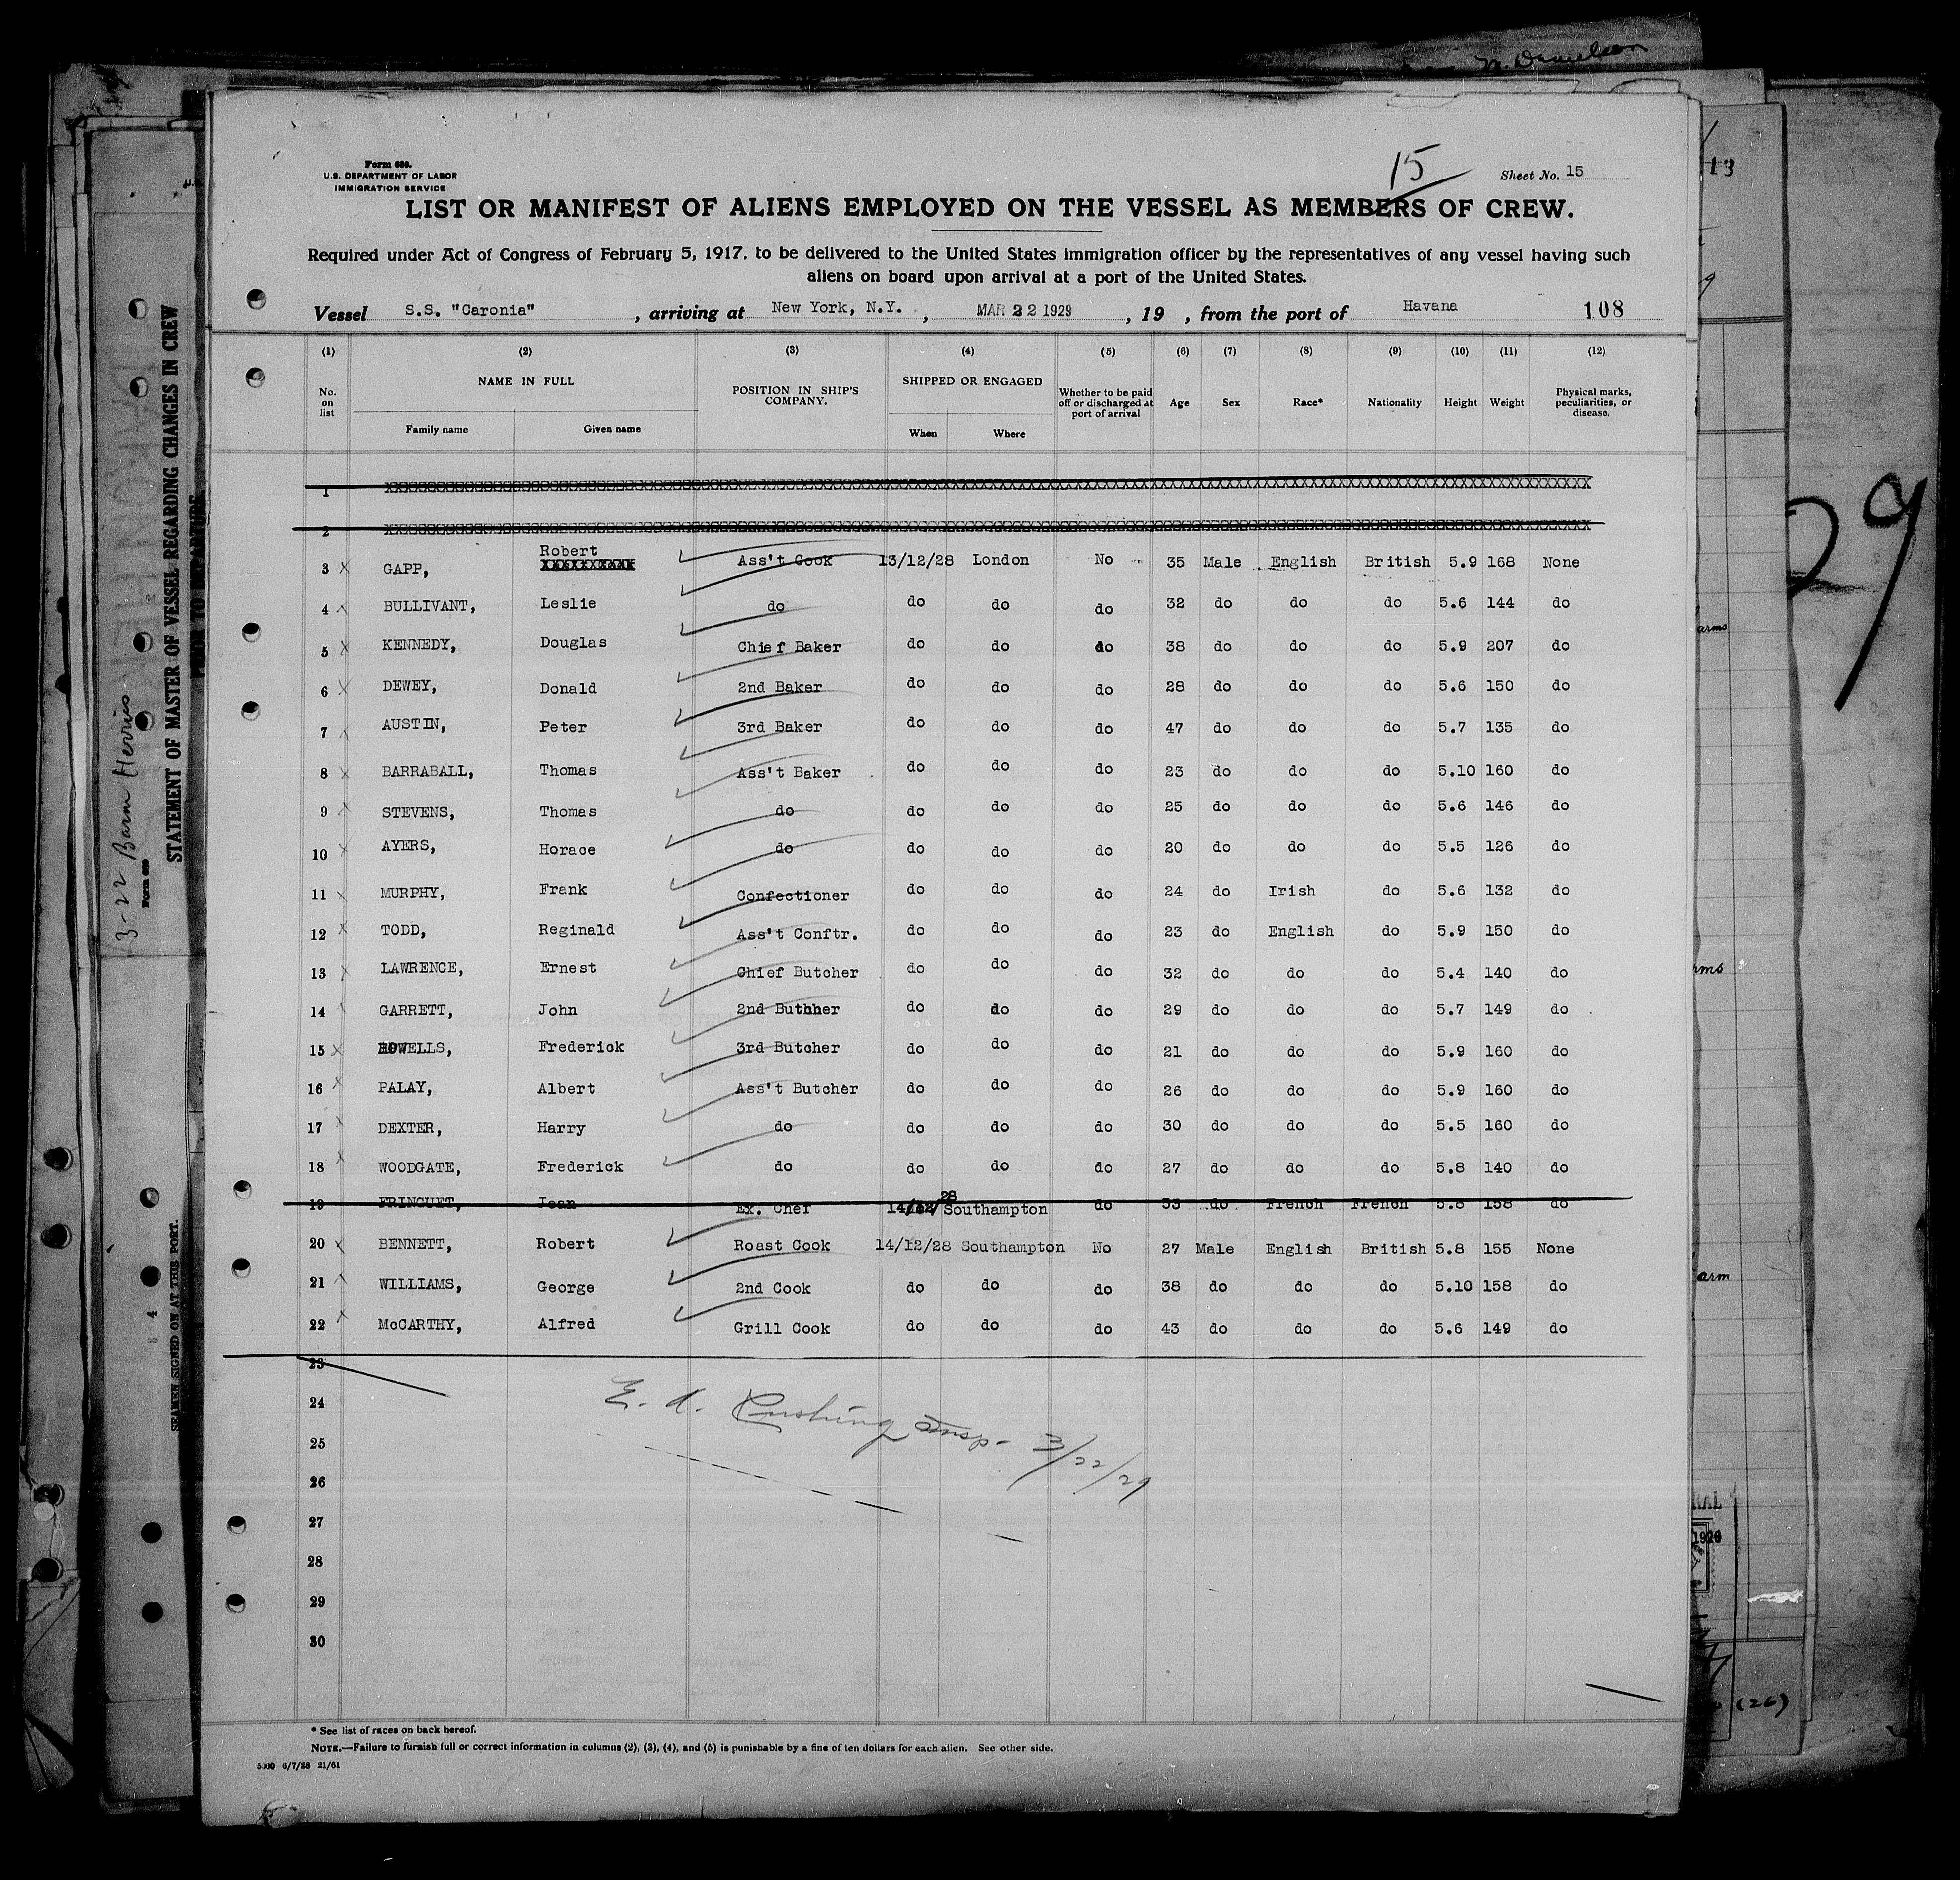 N. Danielson
Form 680.
U.S. DEPARTMENT OF LABOR
IMMIGRATION SERVICE
15
Sheet No. 15
LIST OR MANIFEST OF ALIENS EMPLOYED ON THE VESSEL AS MEMBERS OF CREW.
Required under Act of Congress of February 5, 1917, to be delivered to the United States immigration officer by the representatives of any vessel having such
aliens on board upon arrival at a port of the United States.
Vessel S.S. "Caronia" , arriving at New York, N.Y. , MAR 22 1929 , 19 , from the port of Havana 108
(1) (2) (3) (4) (5) (6) (7) (8) (9) (10) (11) (12)
No. on list NAME IN FULL Family name Given name POSITION IN SHIP'S COMPANY. SHIPPED OR ENGAGED When Where Whether to be paid off or discharged at port of arrival Age Sex Race* Nationality Height Weight Physical marks, peculiarities, or disease.
1
2
3 GAPP, Robert Ass't Cook 13/12/28 London No 35 Male English British 5.9 168 None
4 BULLIVANT, Leslie do do do do 32 do do do 5.6 144 do
5 KENNEDY, Douglas Chief Baker do do do 38 do do do 5.9 207 do
6 DEWEY, Donald 2nd Baker do do do 28 do do do 5.6 150 do
7 AUSTIN, Peter 3rd Baker do do do 47 do do do 5.7 135 do
8 BARRABALL, Thomas Ass't Baker do do do 23 do do do 5.10 160 do
9 STEVENS, Thomas do do do do 25 do do do 5.6 146 do
10 AYERS, Horace do do do do 20 do do do 5.5 126 do
11 MURPHY, Frank Confectioner do do do 24 do Irish do 5.6 132 do
12 TODD, Reginald Ass't Conftr. do do do 23 do English do 5.9 150 do
13 LAWRENCE, Ernest Chief Butcher do do do 32 do do do 5.4 140 do
14 GARRETT, John 2nd Buthher do do do 29 do do do 5.7 149 do
15 HOWELLS, Frederick 3rd Butcher do do do 21 do do do 5.9 160 do
16 PALAY, Albert Ass't Butcher do do do 26 do do do 5.9 160 do
17 DEXTER, Harry do do do do 30 do do do 5.5 160 do
18 WOODGATE, Frederick do do do do 27 do do do 5.8 140 do
19 FRINGUET, Jean Ex. Chef 14/12/28 Southampton do 53 do French French 5.8 158 do
20 BENNETT, Robert Roast Cook 14/12/28 Southampton No 27 Male English British 5.8 155 None
21 WILLIAMS, George 2nd Cook do do do 38 do do do 5.10 158 do
22 McCARTHY, Alfred Grill Cook do do do 43 do do do 5.6 149 do
23
24
25
26
27
28
29
30
E. A. Cushing Insp- 3/22/29
* See list of races on back hereof.
NOTE.—Failure to furnish full or correct information in columns (2), (3), (4), and (5) is punishable by a fine of ten dollars for each alien. See other side.
5000 6/7/28 21/61
STATEMENT OF MASTER OF VESSEL REGARDING CHANGES IN CREW
PRIOR TO DEPARTURE
Form 689
SEAMEN SIGNED ON AT THIS PORT.
4
13
29
arms
arms
arm
1929
(26)